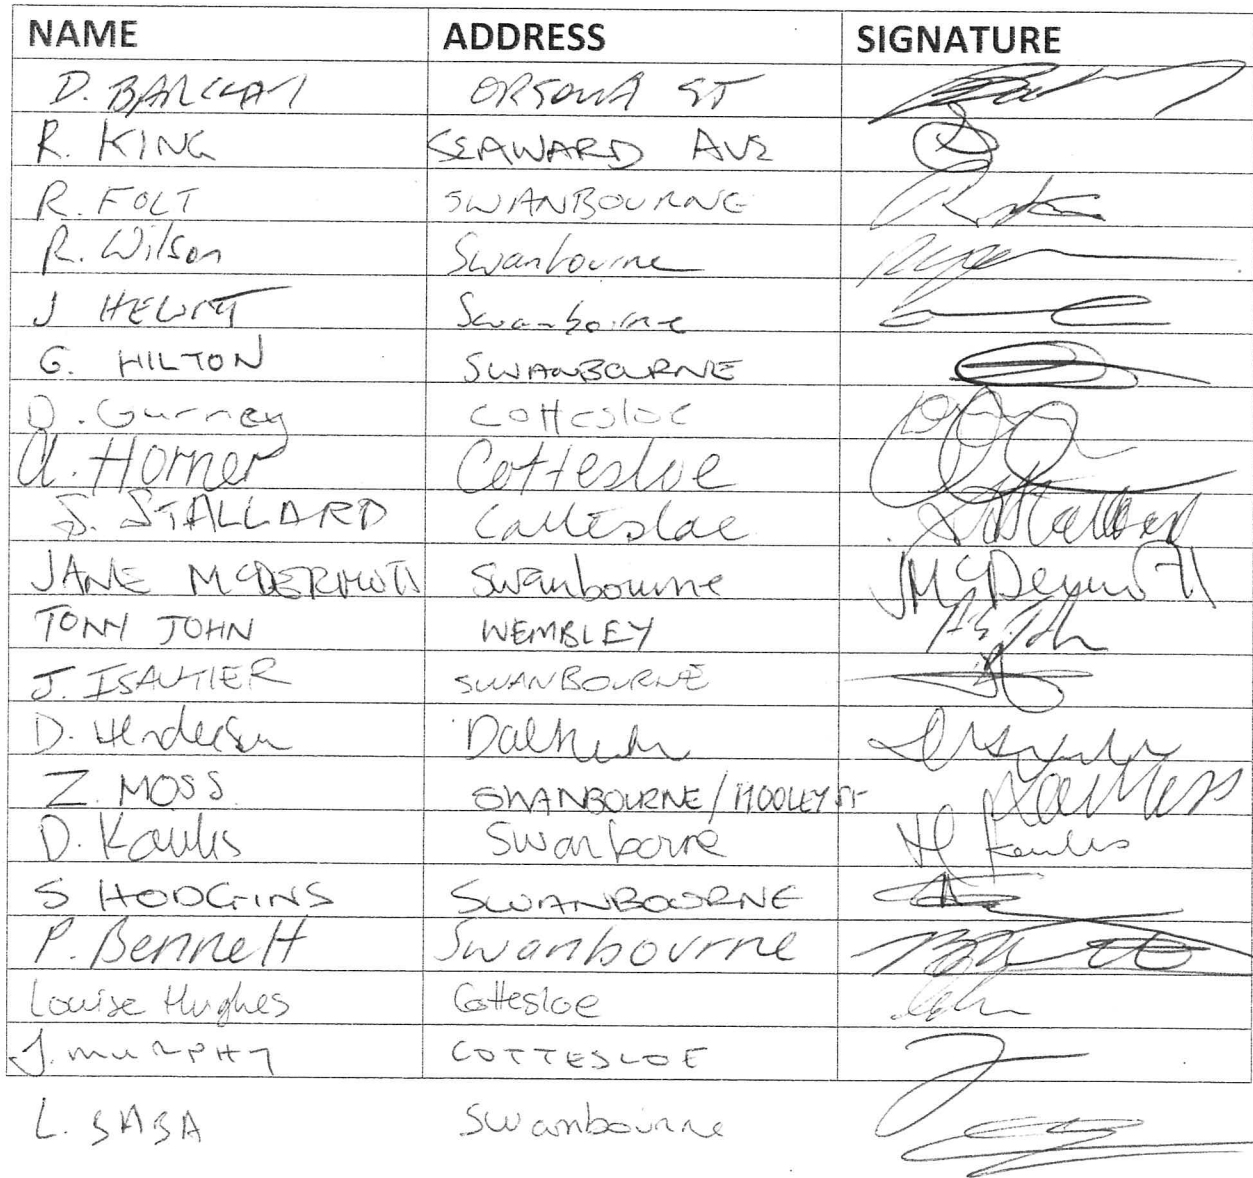 NAME ADDRESS SIGNATURE
D. BARCLAY ORSOVA ST
R. KING SEAWARD AVE
R. FOLT SWANBOURNE
R. Wilson Swanbourne
J HEWITT Swanbourne
G. HILTON SWANBOURNE
D. Gurney Cottesloe
A. Horner Cottesloe
S. STALLARD Cottesloe
JANE MCDERMOTT Swanbourne JMcDermott
TONY JOHN WEMBLEY
J. ISAUTIER SWANBOURNE
D. Henderson Dalkeith
Z. MOSS SWANBOURNE/MOOLEY ST
D. Kaulis Swanborne
S HODGINS SWANBOURNE
P. Bennett Swanbourne
Louise Hughes Cottesloe
J. MURPHY COTTESLOE
L. SABA Swanbourne